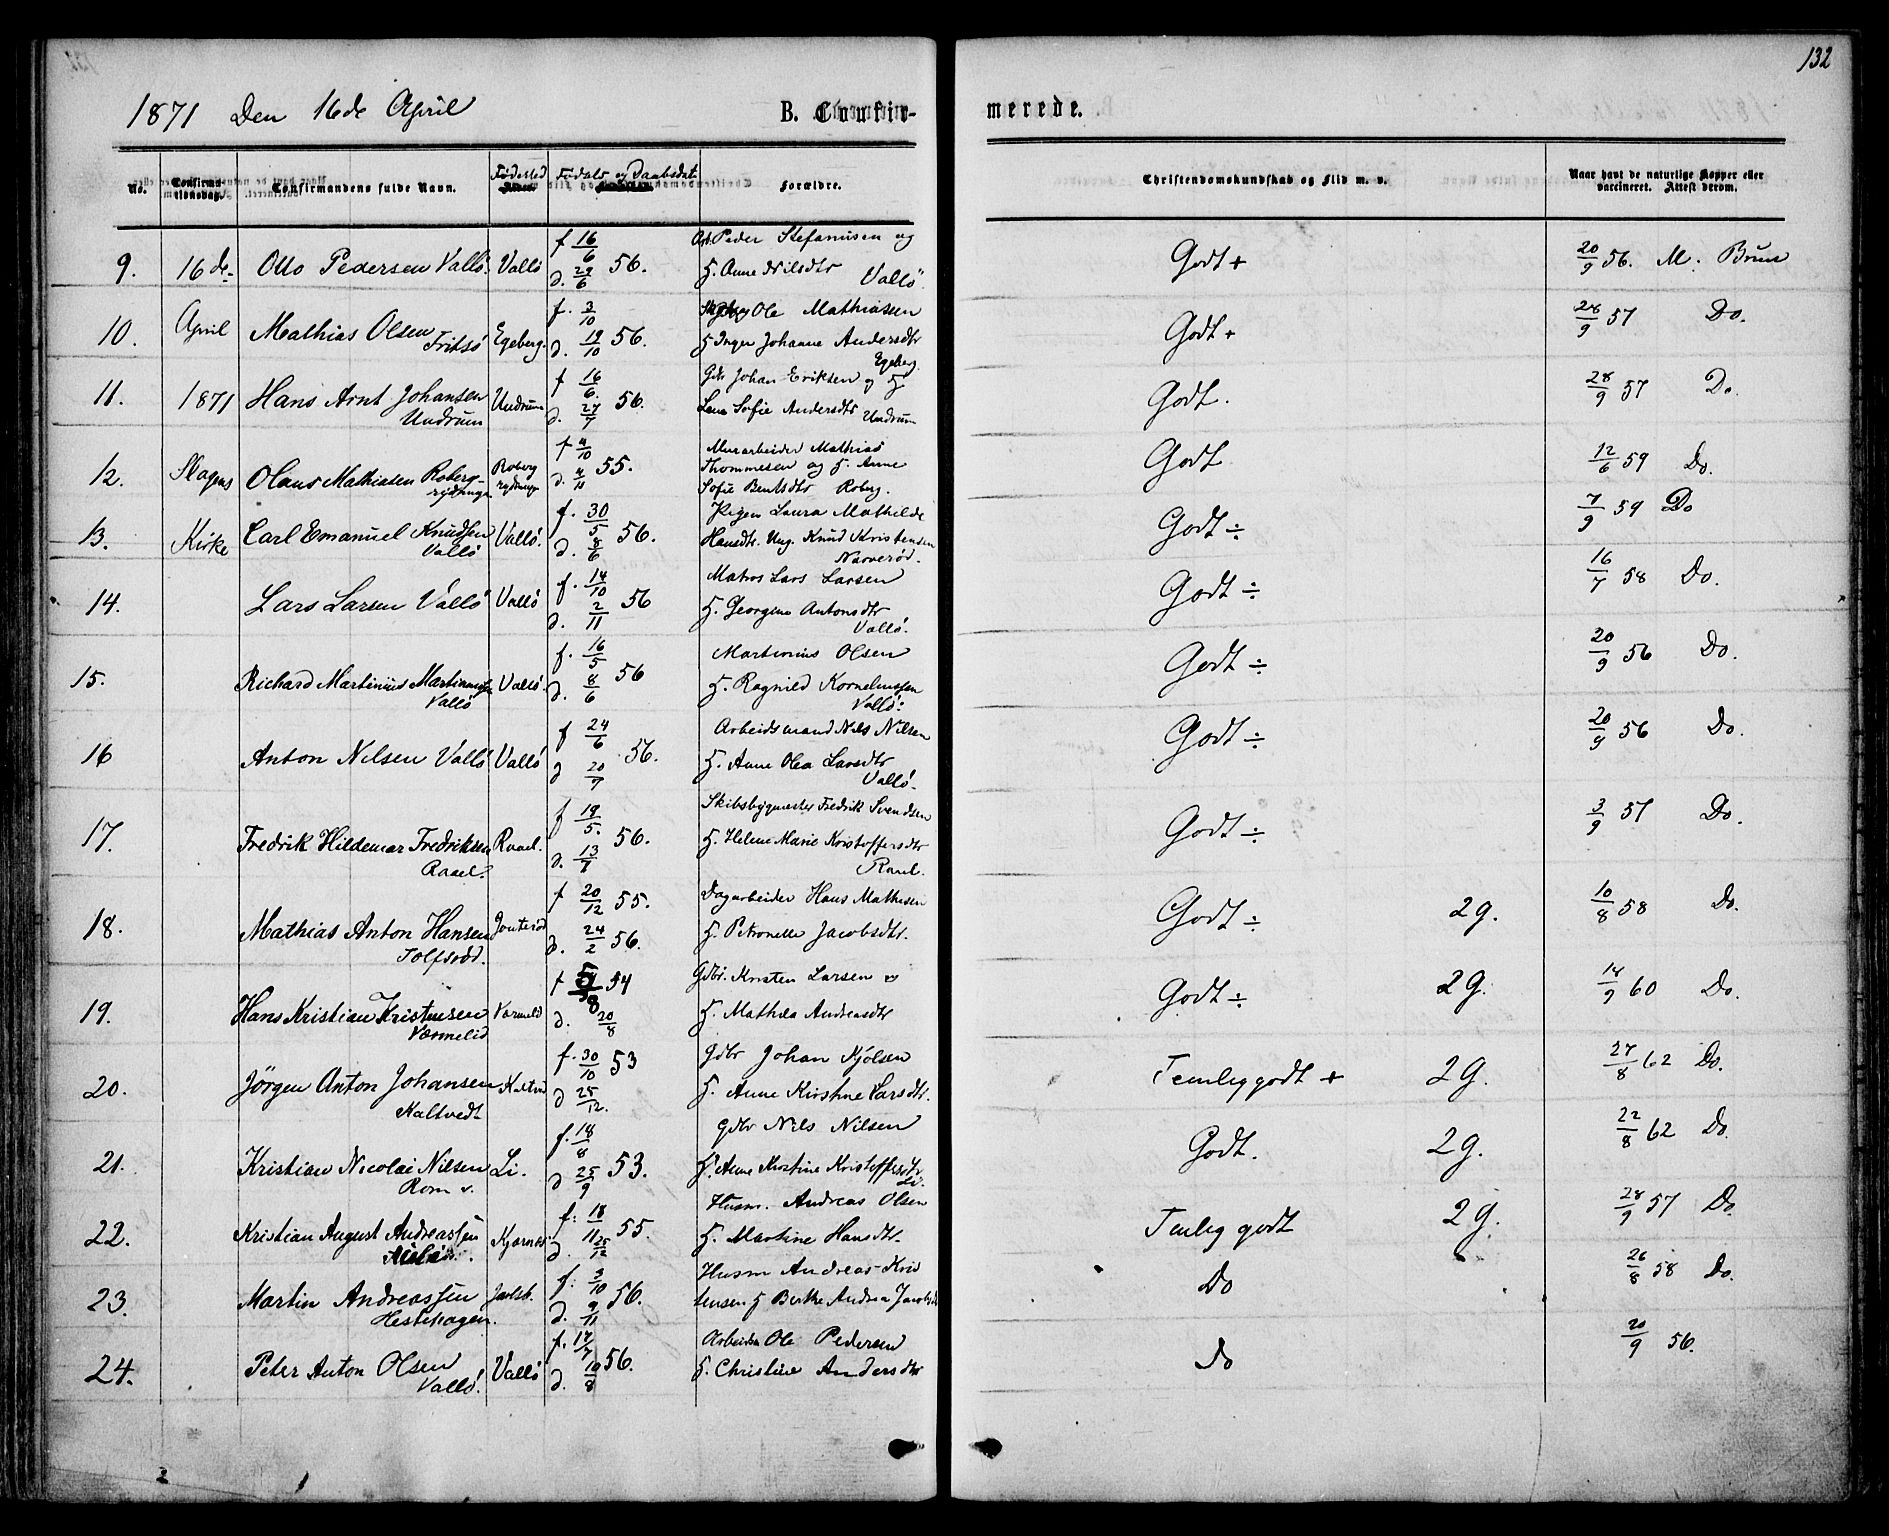 132
1871 Den 16de April B. Confirmerede.
No. Confirmationsdag. Confirmandens fulde Navn. Fødested Fødsels og Daabsdat Forældre. Christendomskundskab og Flid m. v. Naar havt de naturlige Kopper eller vaccineret. Attest derom.
9. 16de Otto Pedersen Vallö. Vallö f 16/6 d. 29/6 56. Arb. Peder Stefanusen og
H. Anne Nilsdtr Vallö Godt + 20/9 56. M. Bruus
10. April Mathias Olsen Fritsö Egeberg. f. 3/10 d. 19/10 56. Ole Mathiassen
H Inger Johanne Andersdtr Egeberg. Godt + 28/9 57 Do.
11. 1871 Hans Arnt Johansen Undrum Undrum f 16/6. d. 27/7 56. Gdb Johan Eriksen og H
Lena Sofie Andersdtr Undrum Godt. 28/9 57 Do.
12. Slagens Olaus Mathiasen Roberg-
rydninge Roberg rydninge f 4/10 d. 4/11 55. Murarbeider Mathias
Thommesen og H. Anne
Sofie Bentsdtr Roberg. Godt 12/6 59 Do.
13. Kirke Carl Emanuel Knudsen
Vallö Vallö. f. 30/5 d. 8/6 56. Pigen Laura Mathilde
Hansdtr. Ung. Knud Kristensen
Narverød. Godt ÷ 7/9 59 Do
14. Lars Larsen Vallö Vallö f. 14/10 d. 2/11 56 Matros Lars Larsen
H. Georgine Antonsdtr
Vallö. Godt ÷ 16/7 58 Do.
15. Richard Martinius Martinussen
Vallö Vallö. f. 16/5 d. 8/6 56 Martinius Olsen
H. Ragnild Kornelinssen
Vallö. Godt ÷ 20/9 56 Do.
16 Anton Nilsen Vallö Vallö f 24/6 d 20/7 56. Arbeidsmand Nils Nilsen
H. Anne Olea Larsdtr
Vallö. Godt ÷ 20/9 56 Do.
17. Fredrik Hildemar Fredriksen
Raael. Raael. f 19/5. d. 13/7 56. Skibsbygmester Fredrik Svendsen
H. Helene Marie Kristoffersdtr
Raael. Godt ÷ 3/9 57 Do.
18. Mathias Anton Hansen
Tolfsrød. Jonterød f 20/12 55. d. 24/2 56. Dagarbeider Hans Mathisen
H. Petronelle Jacobsdtr. Godt ÷ 2g. 10/8 58 Do.
19. Hans Kristian Kristensen
Værmelid Værmelid f 54 d. 20/8 Gdbr. Kristen Larsen og
H. Mathea Andreasdtr Godt ÷ 2g. 14/9 60 Do.
20. Jörgen Anton Johansen
Kaltvedt Kaltved f. 30/10 53 d 25/12. Gdbr Johan Kjölsen
H. Anne Kirstine Larsdtr. Temlig godt + 2g. 27/8 62 Do.
21. Kristian Nicolai Nilsen
Rom v. Li. f. 18/8 d 25/9 53. Gdbr Nils Nilsen
H. Anne Kirstine Kristoffersdtr
Li. Godt. 2g. 22/8 62 Do.
22. Kristian August Andreassen
Kjærnes f: 18/11 d. 25/12 55. Husm. Andreas Olsen
H. Martine Hansdtr. Temlig godt 2g. 28/9 57 Do.
23. Martin Andreassen
Hestehagen. Jarlsb. f: 3/10 d. 9/11 56. Husm Andreas Kris
tensen H Berthe Andrea Jacobsd Do 26/8 58 Do.
24. Peter Anton Olsen
Vallö. Vallö f. 17/7 d. 10/8 56. Arbeider Ole Pedersen
H. Christine Andersdtr Do 20/9 56.